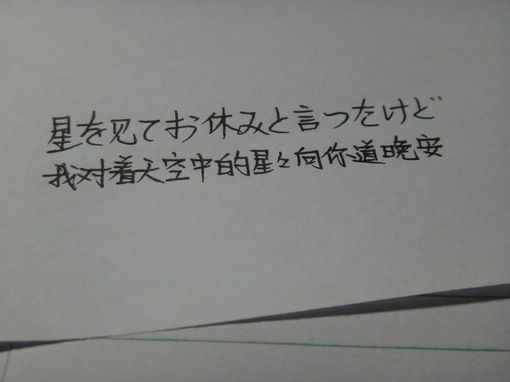 星を见てお休みと言ったけど
我对着天空中的星々向你道晚安